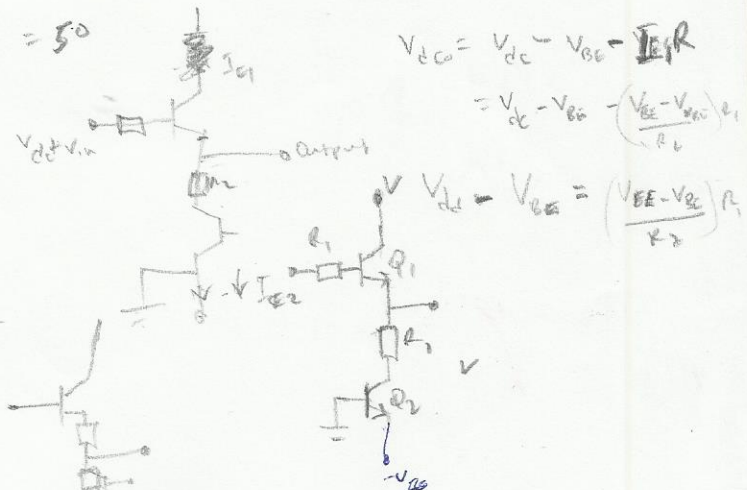 = 50
I_E1
V_dc + V_in
Output
R_2
I_E2
V_dco = V_dc - V_BE - I_E1 R
= V_dc - V_BE - (V_EE - V_BE / R_2) R_1
V_dd - V_BE = (V_EE - V_BE / R_2) R_1
V
R_1
Q_1
R_2
V
Q_2